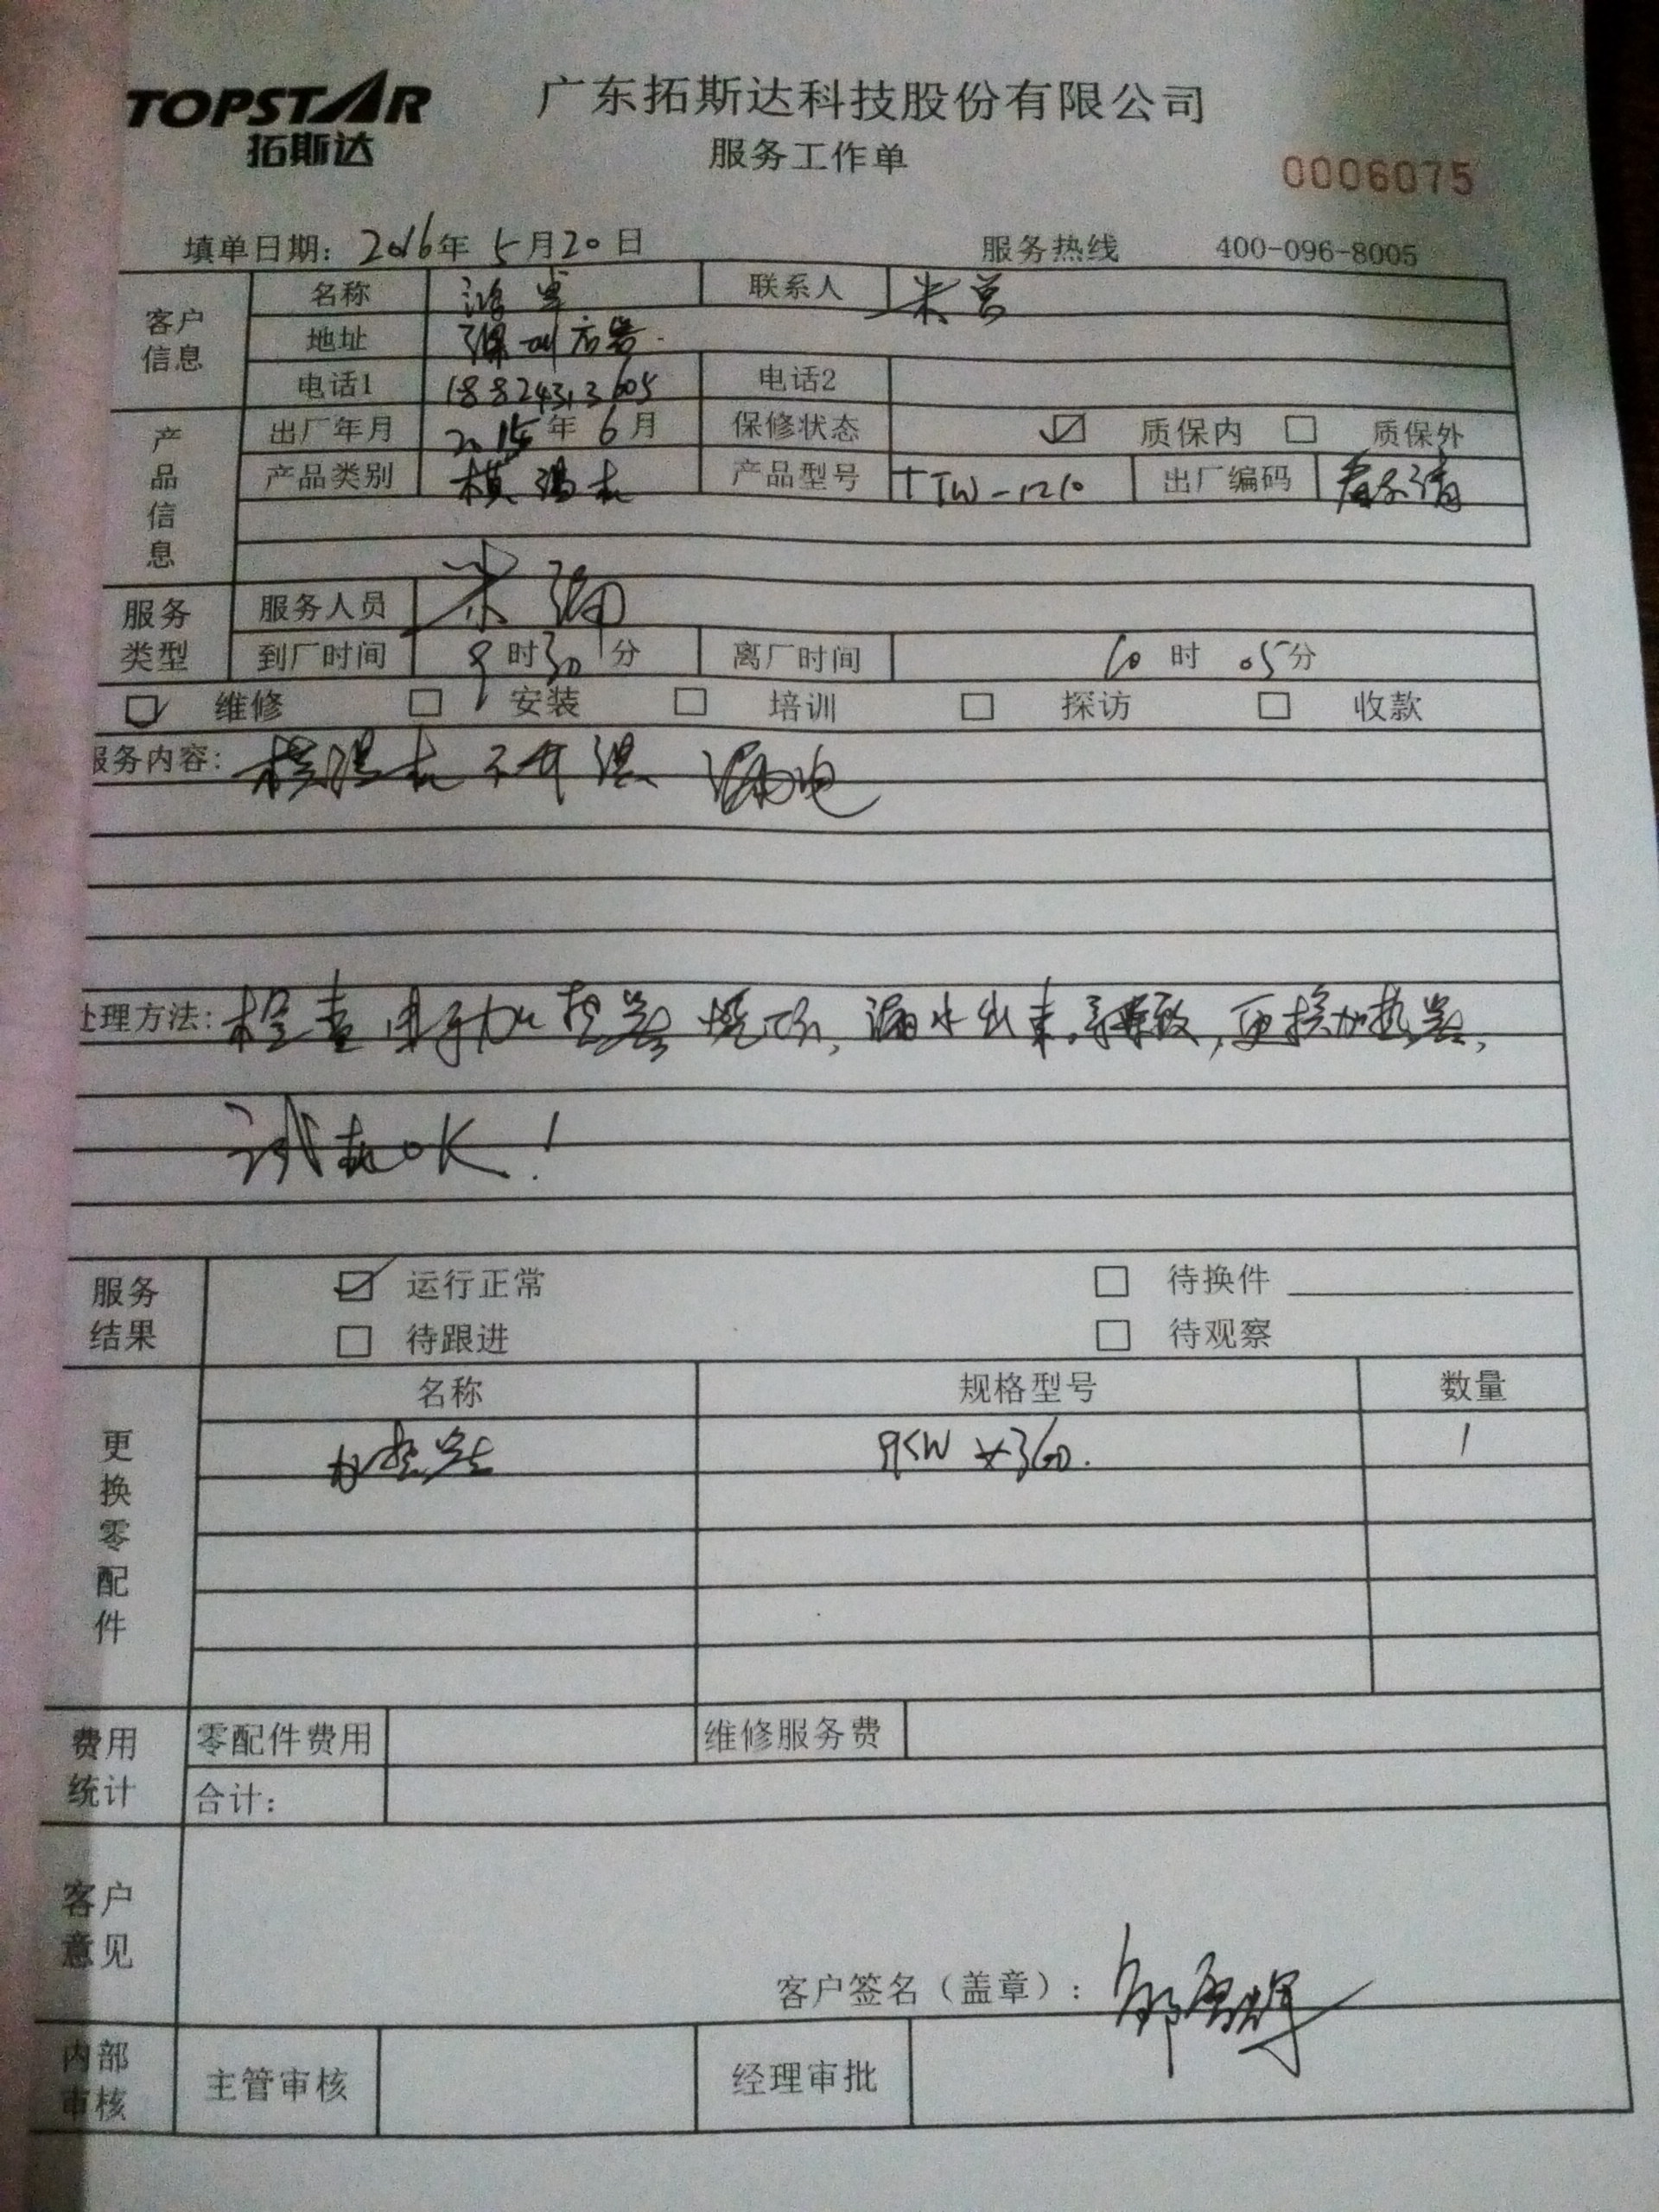 TOPSTAR
拓斯达
广东拓斯达科技股份有限公司
服务工作单
0006075
填单日期: 2016年 5月20日 服务热线 400-096-8005
客户信息
名称 鸿卓 联系人 朱总
地址 深圳
电话1 18824313605 电话2
产品信息
出厂年月 2015年 6月 保修状态 ☑ 质保内 □ 质保外
产品类别 模温机 产品型号 TTW-1210 出厂编码 看不清
服务类型
服务人员
到厂时间 9时30分 离厂时间 10时 05分
☑ 维修 □ 安装 □ 培训 □ 探访 □ 收款
服务内容: 模温机不升温 漏电
处理方法: 检查由于加热器烧坏, 漏水出来导致, 更换加热器,
试机OK!
服务结果
☑ 运行正常 □ 待换件
□ 待跟进 □ 待观察
更换零配件
名称 规格型号 数量
加热器 9KW ×360. 1
费用统计
零配件费用 维修服务费
合计:
客户意见
客户签名（盖章）:
内部审核
主管审核 经理审批